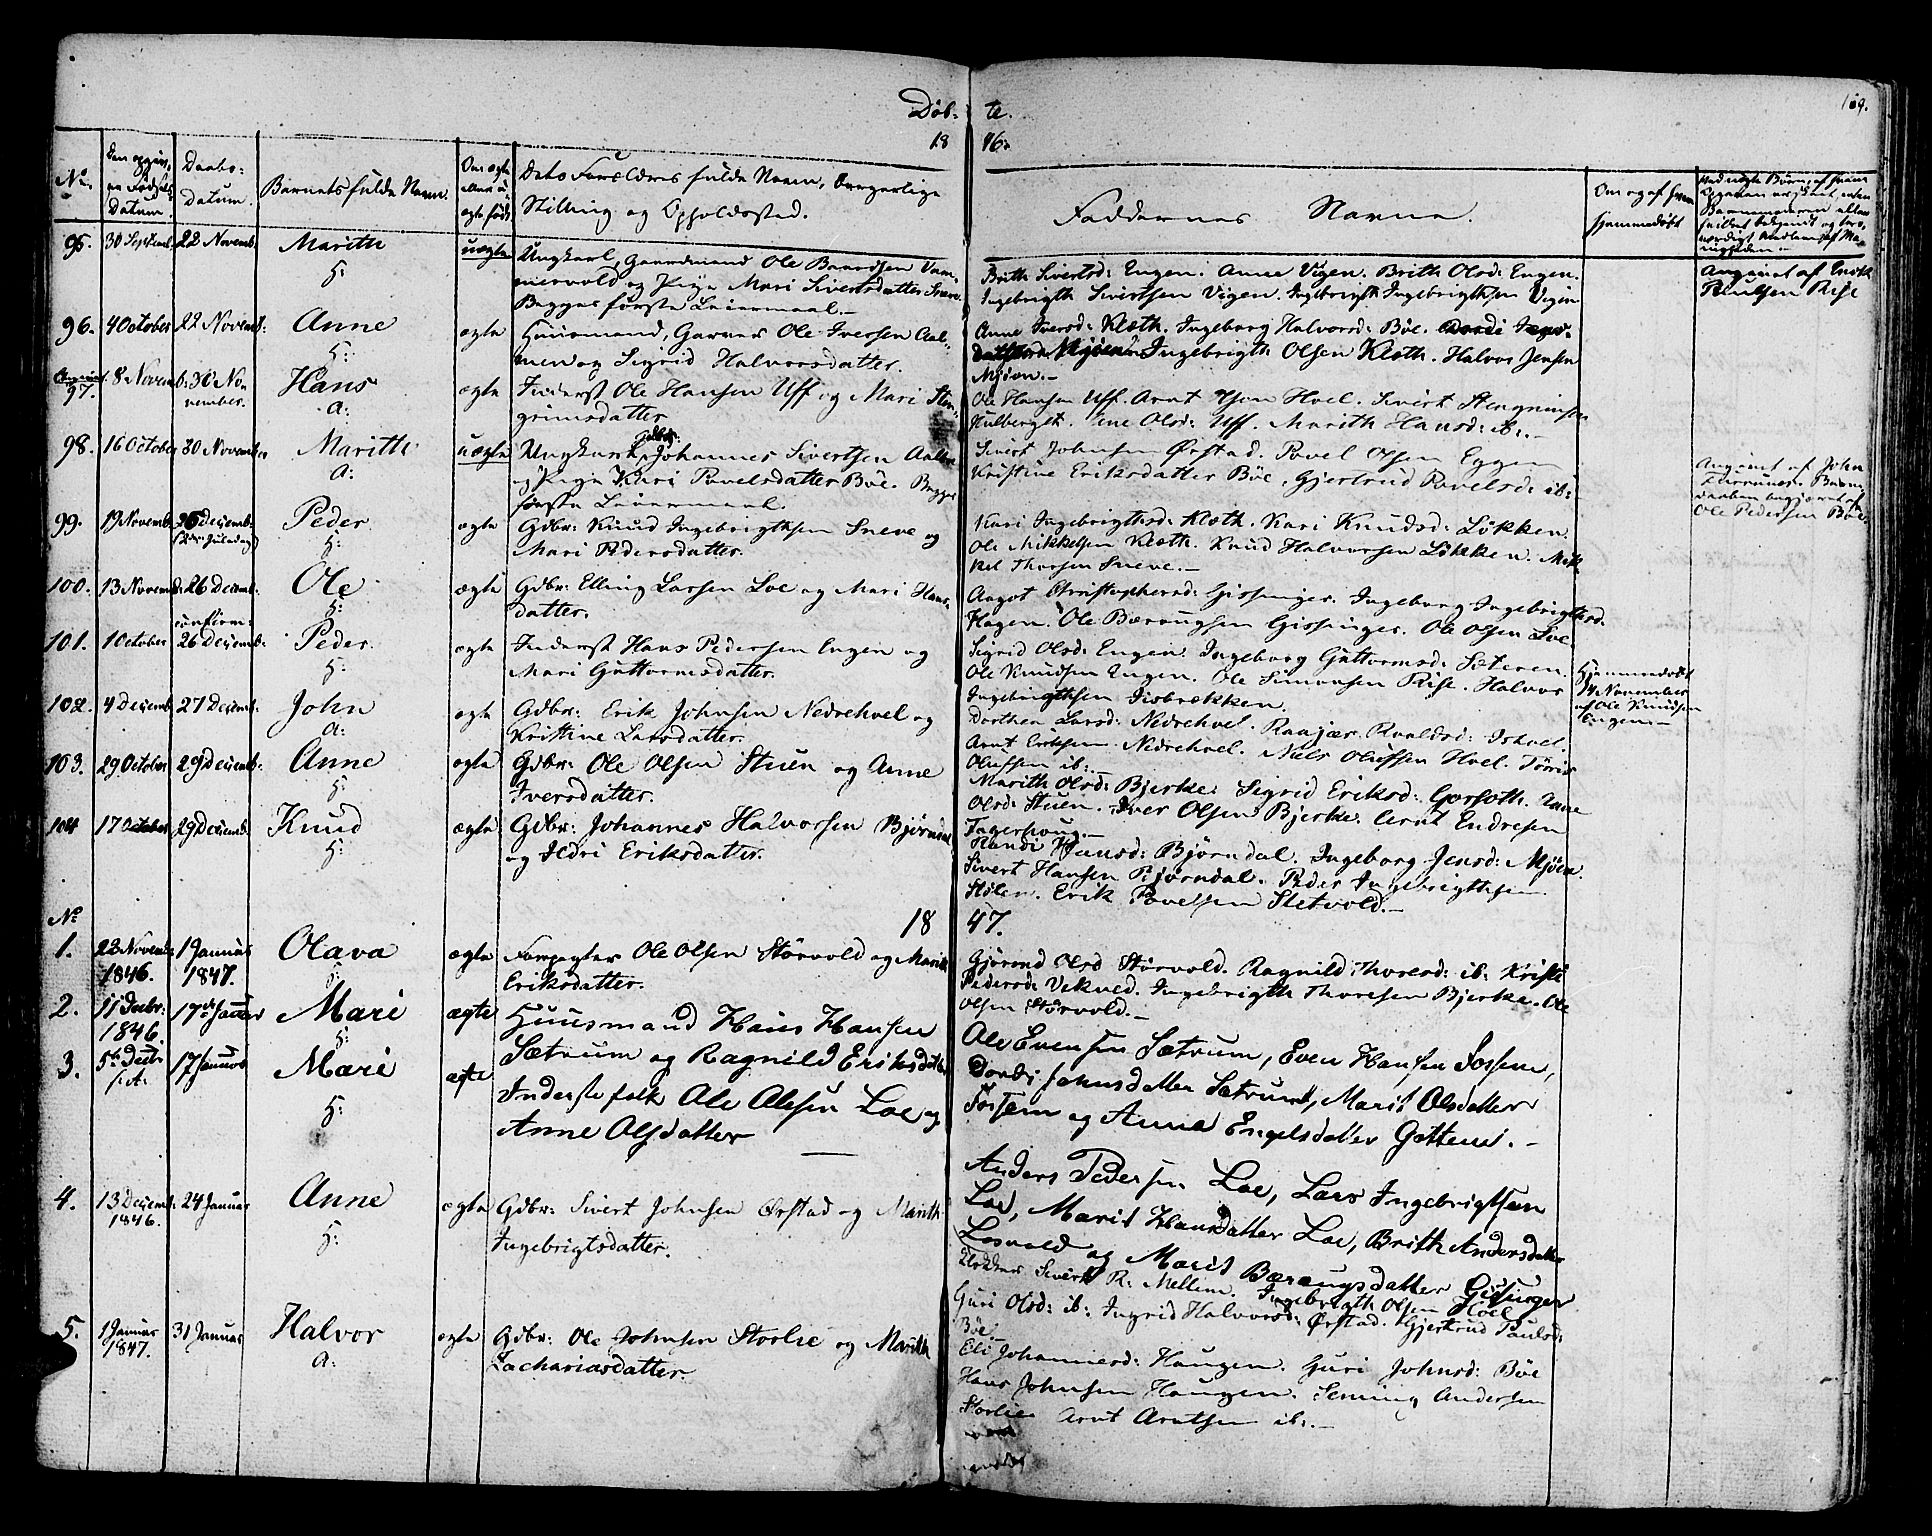 Døb- te.
169.
18 46.
No. Den opgivne Fødsels Datum. Daabs-Datum. Barnets fulde Navn. Om ægte eller uægte født Dets Forældres fulde Navn, borgerlige
Stilling og Opholdssted.
Faddernes Navne.
Om og af hvem hjemmedøbt
95. 30 Septemb. 22 Novemb. Marith uægte Ungkarl, Gaardmand Ole Baardsen
og Pige Mari Sivertsdatter
Begges første Leiermaal.
Brith Sivertsd: Engen. Anne Vigen. Brith Olsd: Engen.
Ingebrigth Sivertsen Vigen. Ingebrigth Ingebrigthsen Vigen
Angivet af Enok
Poulsen Rise
96. 4 October 22 Novemb: Anne ægte Huusmand, Garver Ole Iversen Aal-
men og Sigrid Halvorsdatter.
Anne Iversd: Kleth. Ingeborg Halvorsd: Böe.
Ingebrigth Olsen Kleth. Halvor Jensen
Mjöen.
97. 8 Novemb: 30 No-
vember. Hans ægte Inderst Ole Hansen Uff og Mari Sten-
grimsdatter
Ole Hansen Uff. Arnt Olsen Hoel. Sivert Stengrimsen
Hulbergth. Ane Olsd: Uff. Marith Hansd: ib:
98. 16 October 30 November Marith uægte Ungkarl, Johannes Sivertsen
og Pige Kari Povelsdatter Böe. Begges
første Leiermaal.
Sivert Johnsen Ørstad. Povel Olsen Eggen
Kristine Eriksdatter Böe, Gjertrud Povelsd: ib:
Angivet af John
Ole Pedersen Böe
99. 19 Novemb. 25 Decemb: Peder ægte Gdbr: Knud Ingebrigthsen Sneve og
Mari Pedersdatter.
Kari Ingebrigthsd: Kleth. Kari Knudsd: Løkken.
Ole Mikkelsen Kleth. Knud Halvorsen Løkken. Mik-
kel Thorsen Sneve.
100. 13 Novemb: 26 Decemb: Ole ægte Gdbr: Elling Larsen Loe og Mari Hans-
datter.
Aagot Christophersd: Gissinger. Ingeborg Ingebrigthsd.
Hagen. Ole Bæraugsen Gissinger. Ole Olsen Loe
101. 1 October confirm:
26 Decemb: Peder ægte Inderst Hans Pedersen Engen og
Mari Guttormsdatter.
Sigrid Olsd: Engen. Ingeborg Guttormsd: Sæteren.
Ole Knudsen Engen. Ole Simonsen Rise. Halvor
Ingebrigthsen Isbrækken.
Hjemmedøbt
14 November
af Ole Knudsen
Engen.
102. 4 Decemb 27 Decemb: John
a: ægte Gdbr: Erik Johnsen Nedrehoel og
Kristine Larsdatter.
Dorthea Larsd: Nedrehoel. Roaldsd: Ishoel.
Arnt Eriksen Nedrehoel. Niels Oluffsen Hoel.
Oluffsen ib:
103. 29 October 29 Decemb: Anne ægte Gdbr: Ole Olsen Stuen og Anne
Iversdatter.
Marith Olsd: Bjerke. Sigrid Eriksd: Gorsoth. Anne
Olsd: Stuen. Iver Olsen Bjerke. Arnt Endresen
Fagerhoug.
104 17 October 29 Decemb. Knud ægte Gdbr: Johannes Halvorsen Bjørndal
og Ildri Eriksdatter.
Randi Hansd: Bjørndal. Ingeborg Jensd: Mjöen.
Sivert Hansen Bjørndal. Peder Ingebrigthsen
Stølen. Erik Povelsen Sletvold.
No 18 47.
1. 22 Novemb:
1846. 1 Januar
1847. Olava ægte Forpagter Ole Olsen Størvold og Marith
Eriksdatter.
Gjörond Olsd Størvold. Ragnild Thoresd: ib: Kristi
Pedersd: Vekved. Ingebrigth Thoresen Bjerke. Ole
Olsen Størvold.
2. 11 Decbr:
1846. 17de Januar Mari ægte Huusmand Hans Hansen
Sætrum og Ragnild Eriksdatter
Ole Evensen Sætrum, Even Hansen Fossem,
Dordi Johnsdatter Sætrum, Marit Olsdatter
Fossem og Anna Engelsdatter Gottem.
3. 5te Decbr
s. A. 17 Januar Mari ægte Inderstefolk Ole Olesen Loe og
Anne Olsdatter
Anders Pedersen Loe, Lars Ingebrigtsen
Loe, Marit Hansdatter Loe, Brith Andersdatter
Losvold og Marit Bæraugsdatter Gisinger
4. 13 Decemb:
1846. 24 Januar Anne ægte Gdbr: Sivert Johnsen Ørstad og Marith
Ingebrigtsdatter.
Klokker Sivert R. Mellem. Ingebrigth Olsen Hoel
Guri Olsd: ib: Ingrid Halvorsd: Ørstad. Gjertrud Paulsd:
Böe.
5. 1 Januar
1847. 31 Januar Halvor
a: ægte Gdbr: Ole Johnsen Storlie og Marith
Zachariasdatter.
Eli Johannesd: Haugen. Guri Johnsd: Böe
Hans Johnsen Haugen. Seming Andersen
Storlie. Arnt Arntsen ib: